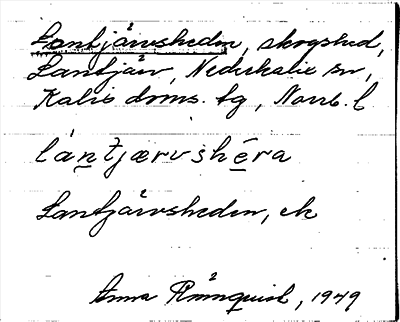 Lantjärvsheden, skogshed,
Lantjärv, Nederkalix sn,
Kalix doms. tg, Norrb. l
lántjærvshéra
Lantjärvsheden, ek
Anna Rönnquist, 1949